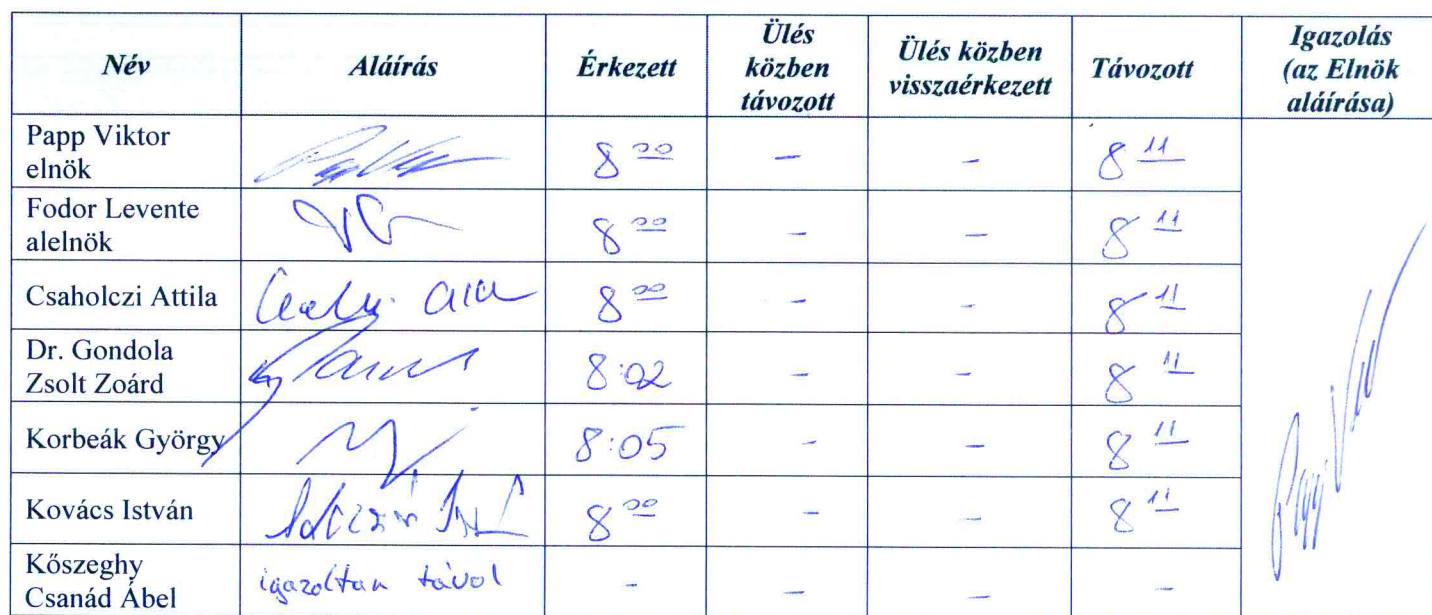 Név Aláírás Érkezett Ülés közben távozott Ülés közben visszaérkezett Távozott Igazolás (az Elnök aláírása)
Papp Viktor
elnök 8 00 - - 8 11
Fodor Levente
alelnök 8 00 - - 8 11
Csaholczi Attila 8 00 - - 8 11
Dr. Gondola
Zsolt Zoárd 8:02 - - 8 11
Korbeák György 8:05 - - 8 11
Kovács István 8 00 - - 8 11
Kőszeghy
Csanád Ábel igazoltan távol - - - -